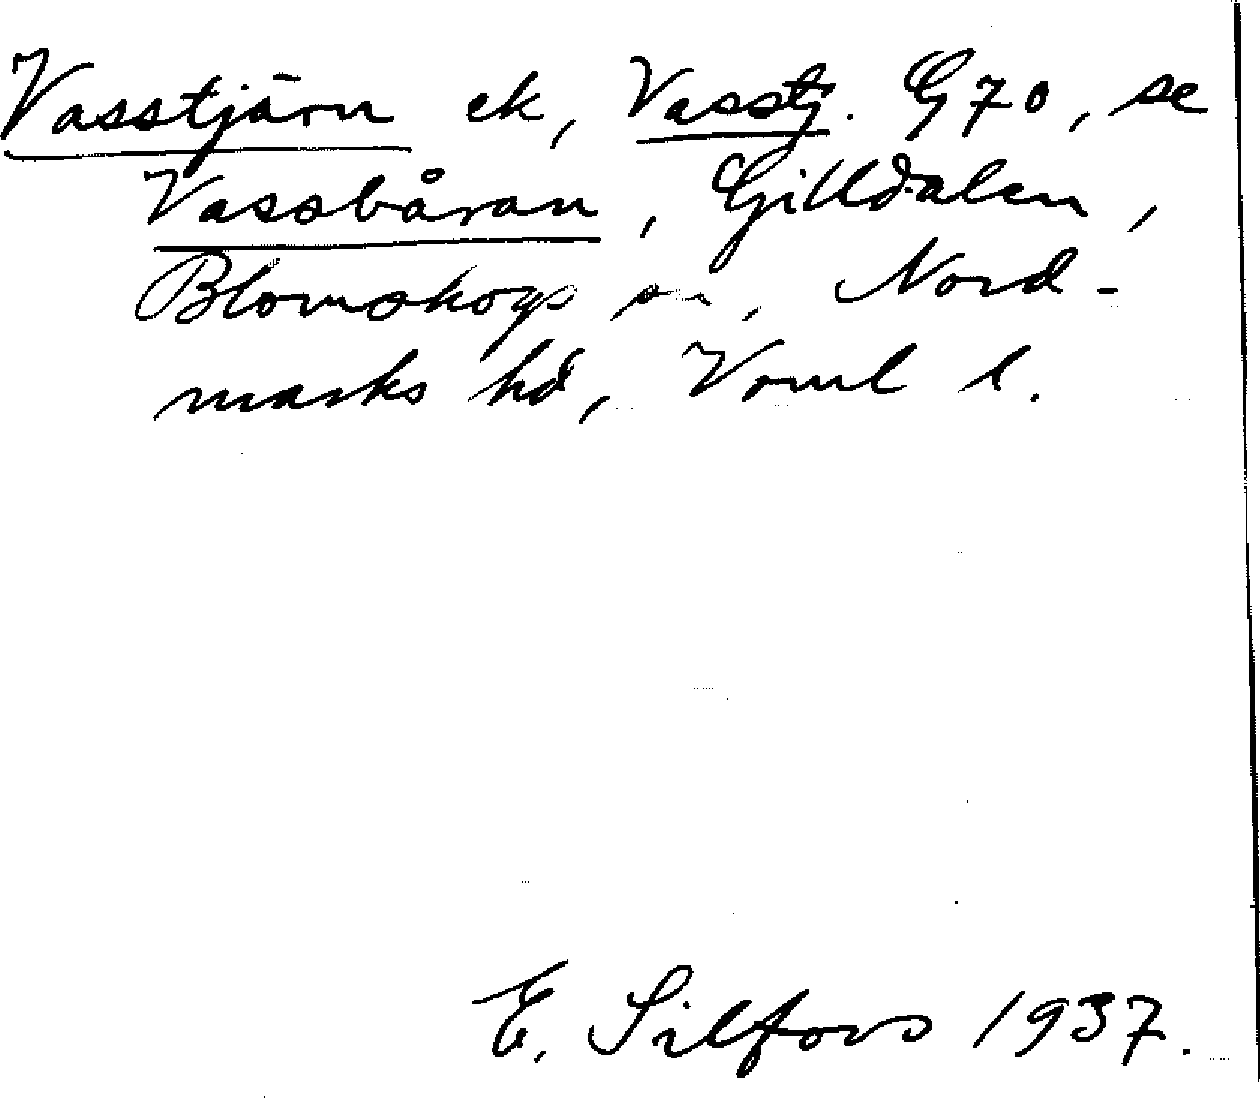 Vasstjärn ek, Vasstj. G70, se
Vassbåran, Gilldalen,
Blomskogs sn, Nord-
marks hd, Vrml l.
E. Silfors 1937.